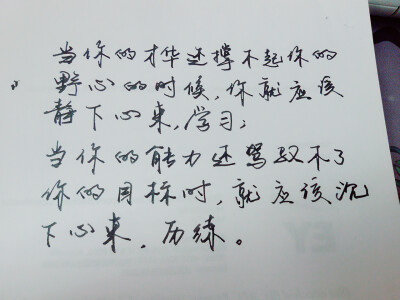 当你的才华还撑不起你的
野心的时候，你就应该
静下心来，学习；
当你的能力还驾驭不了
你的目标时，就应该沉
下心来，历练。
EY